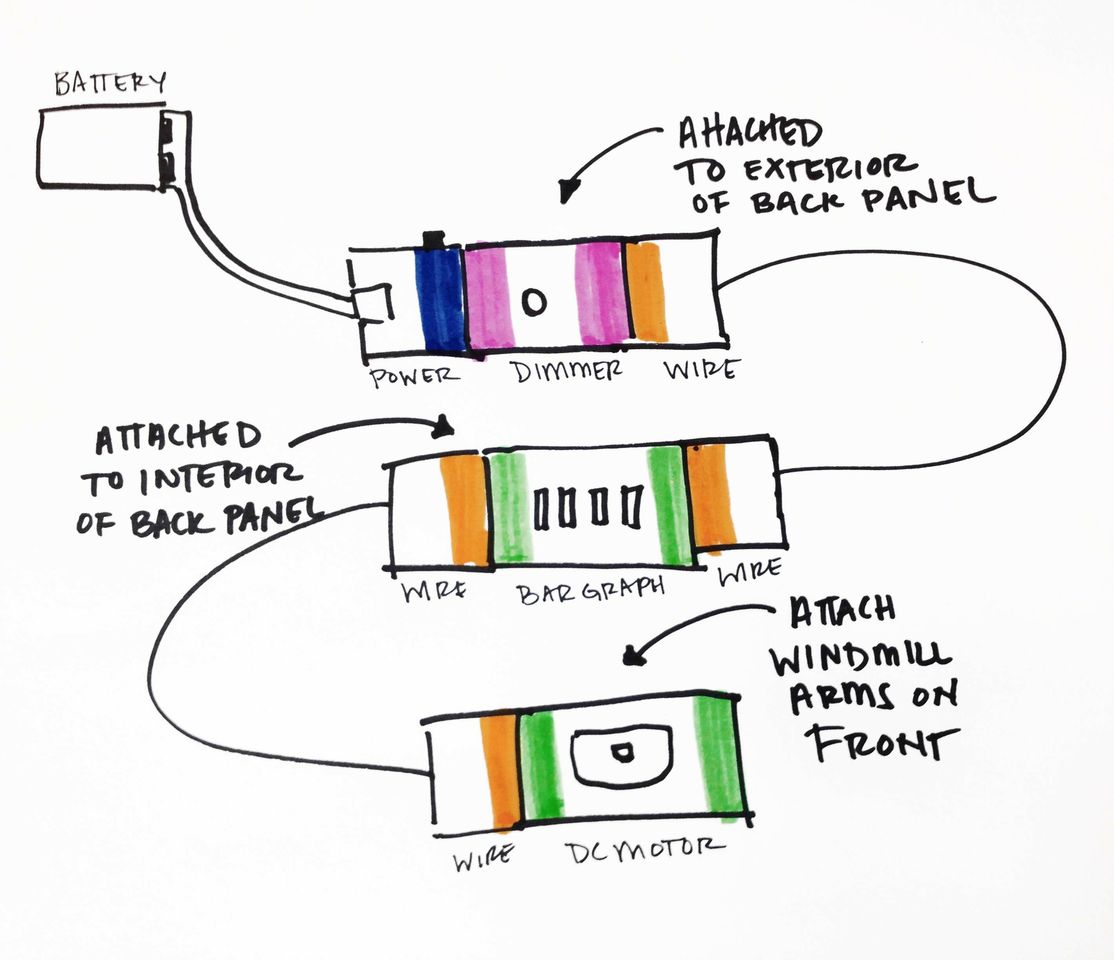 BATTERY
ATTACHED
TO EXTERIOR
OF BACK PANEL
POWER
DIMMER
WIRE
ATTACHED
TO INTERIOR
OF BACK PANEL
WIRE
BARGRAPH
WIRE
ATTACH
WINDMILL
ARMS ON
FRONT
WIRE
DC MOTOR